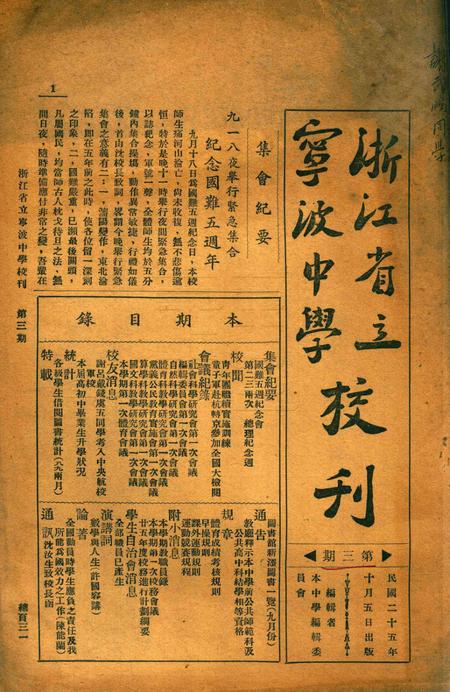 浙江省立
寧波中學校刊
第三期
民國二十五年
十月五日出版
編輯者
本中學編輯委
員會
集會紀要
九一八夜舉行緊急集合
紀念國難五週年
九月十八日為國難五週年紀念日，本校
師生痛河山淪亡，尚未收復，無不悲傷逾
恒，特於是晚十一時舉行夜間緊急集合，
以誌紀念，軍號一聲，全體師生均於五分
鐘內集合操場，動作異常敏捷，行禮如儀
後，首由沈校長致詞，畧謂今晚舉行緊急
集會之意義有二：一，瀋陽變作，東北淪
陷，即在五年前之此時，使各位留一深刻
之印象，二，國難嚴重，已瀕最後關頭，
凡屬國民，均當師古人枕戈待旦之法，無
間日夜，隨時準備應付非常之變，吾輩在
本期目錄
集會紀要
國難五週紀念會
第二三兩次 總理紀念週
校聞
青年團繼續實施訓練
童子軍赴杭轉京參加全國大檢閱
會議紀錄
社會科學研究會第一次會議
編輯委員會第一次會議
自然科學研究會第一次會議
體育科教學研究會第一次會議
黨義公民教育實施會第一次會議
算學科教學研究會第一次會議
國文科教學研究會第一次會議
本學期第一次體育會議
校友消息
謝呂戴錢虞五同學考入中央航校
軍校
本屆高初中畢業生升學狀況
統計
各級學生借閱圖書統計(六九兩月)
特載
圖書館新添圖書一覽(九月份)
通告
教廳釋示本中學前公共師範科及
公共高中科結業相等資格
規章
體育成績考核規則
早操規則
課外運動規則
運動競賽規程
附小消息
本學期教職員錄
本學期第一次校務會議
廿五年度校務進行計劃綱要
學生自治會消息
全部職員已產生
演講詞
數學與人生(許國容講)
論著
全國動員時學生應負之責任及我
所能為國效力之工作(陳能蘭)
通訊
沈汝生致校長函
1
浙江省立寧波中學校刊 第三期
總頁三一